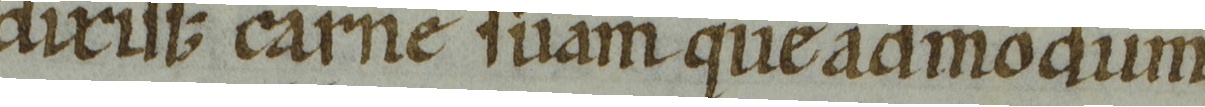 dixiss; carne suam queadmodum